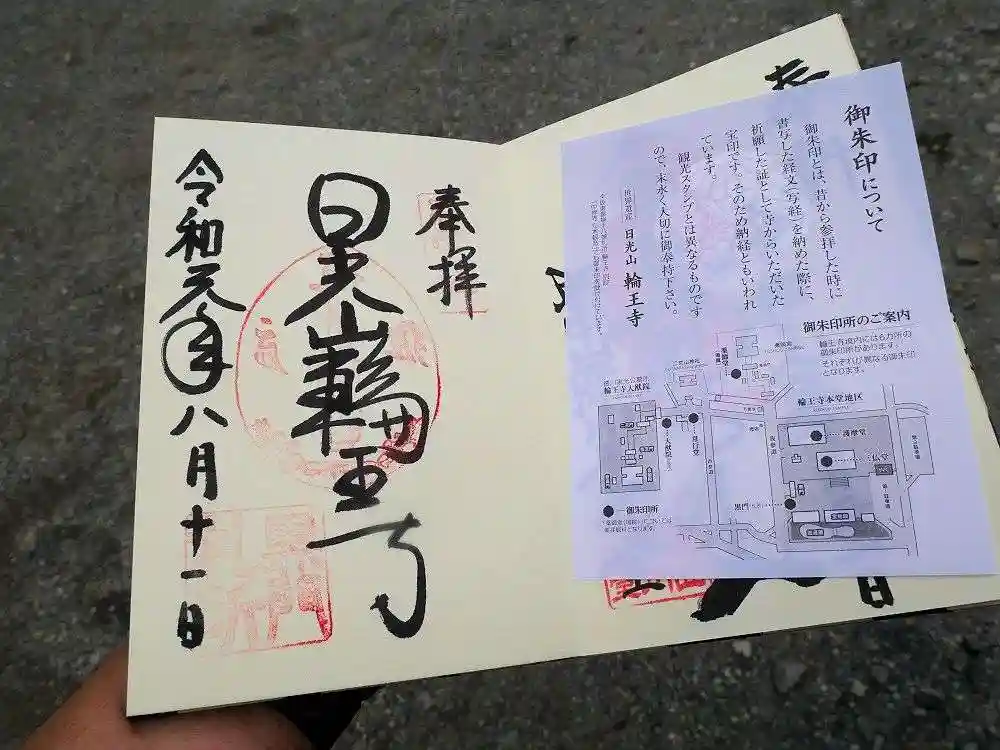 御朱印について
御朱印とは、昔から参拝した時に
書写した経文(写経)を納めた際に、
祈願した証として寺からいただいた
宝印です。そのため納経ともいわれ
ています。
観光スタンプとは異なるものです
ので、末永く大切に御奉持下さい。
世界遺産 日光山 輪王寺
御朱印所のご案内
輪王寺境内には6カ所の
御朱印所があります。
それぞれが異なる御朱印
となります。
輪王寺本堂地区
輪王寺大猷院
薬師堂
護摩堂
三仏堂
黒門
大猷院
常行堂
西参道
表参道
●―御朱印所
奉拝
日光山輪王寺
令和元年八月十一日